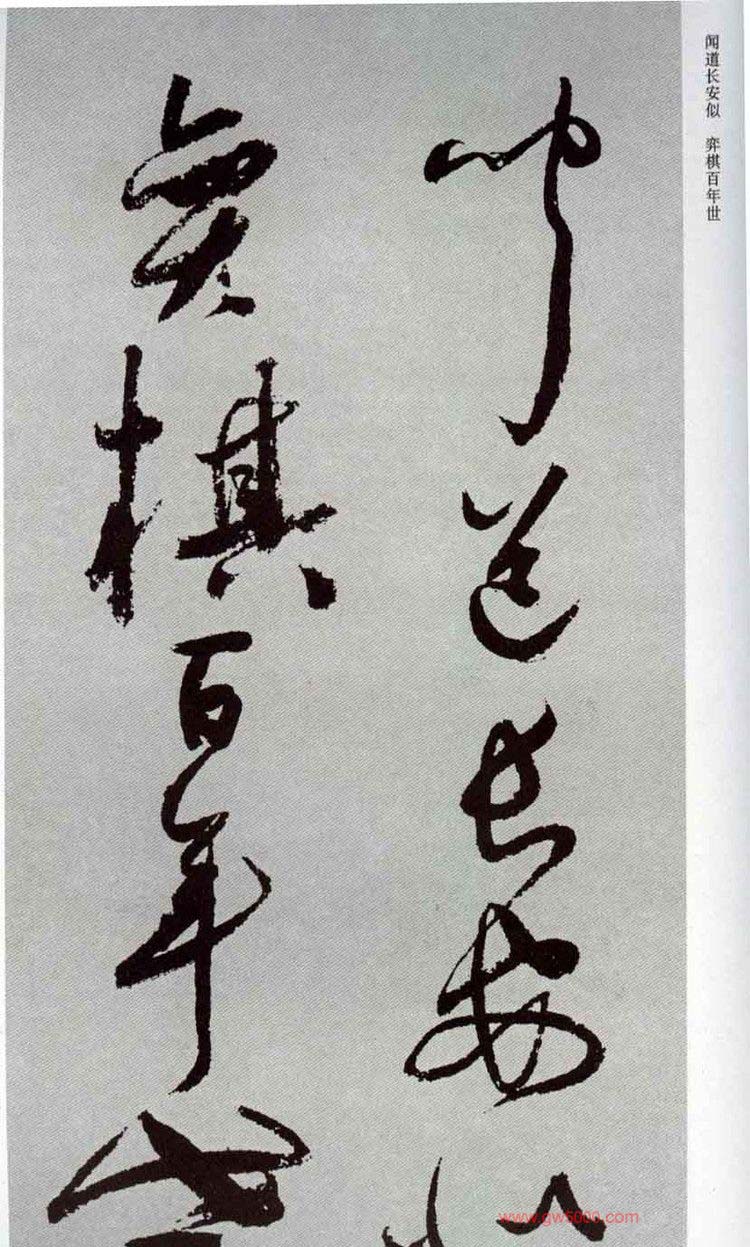 闻道长安似 弈棋百年世
闻道长安似
弈棋百年世
www.gw5000.com